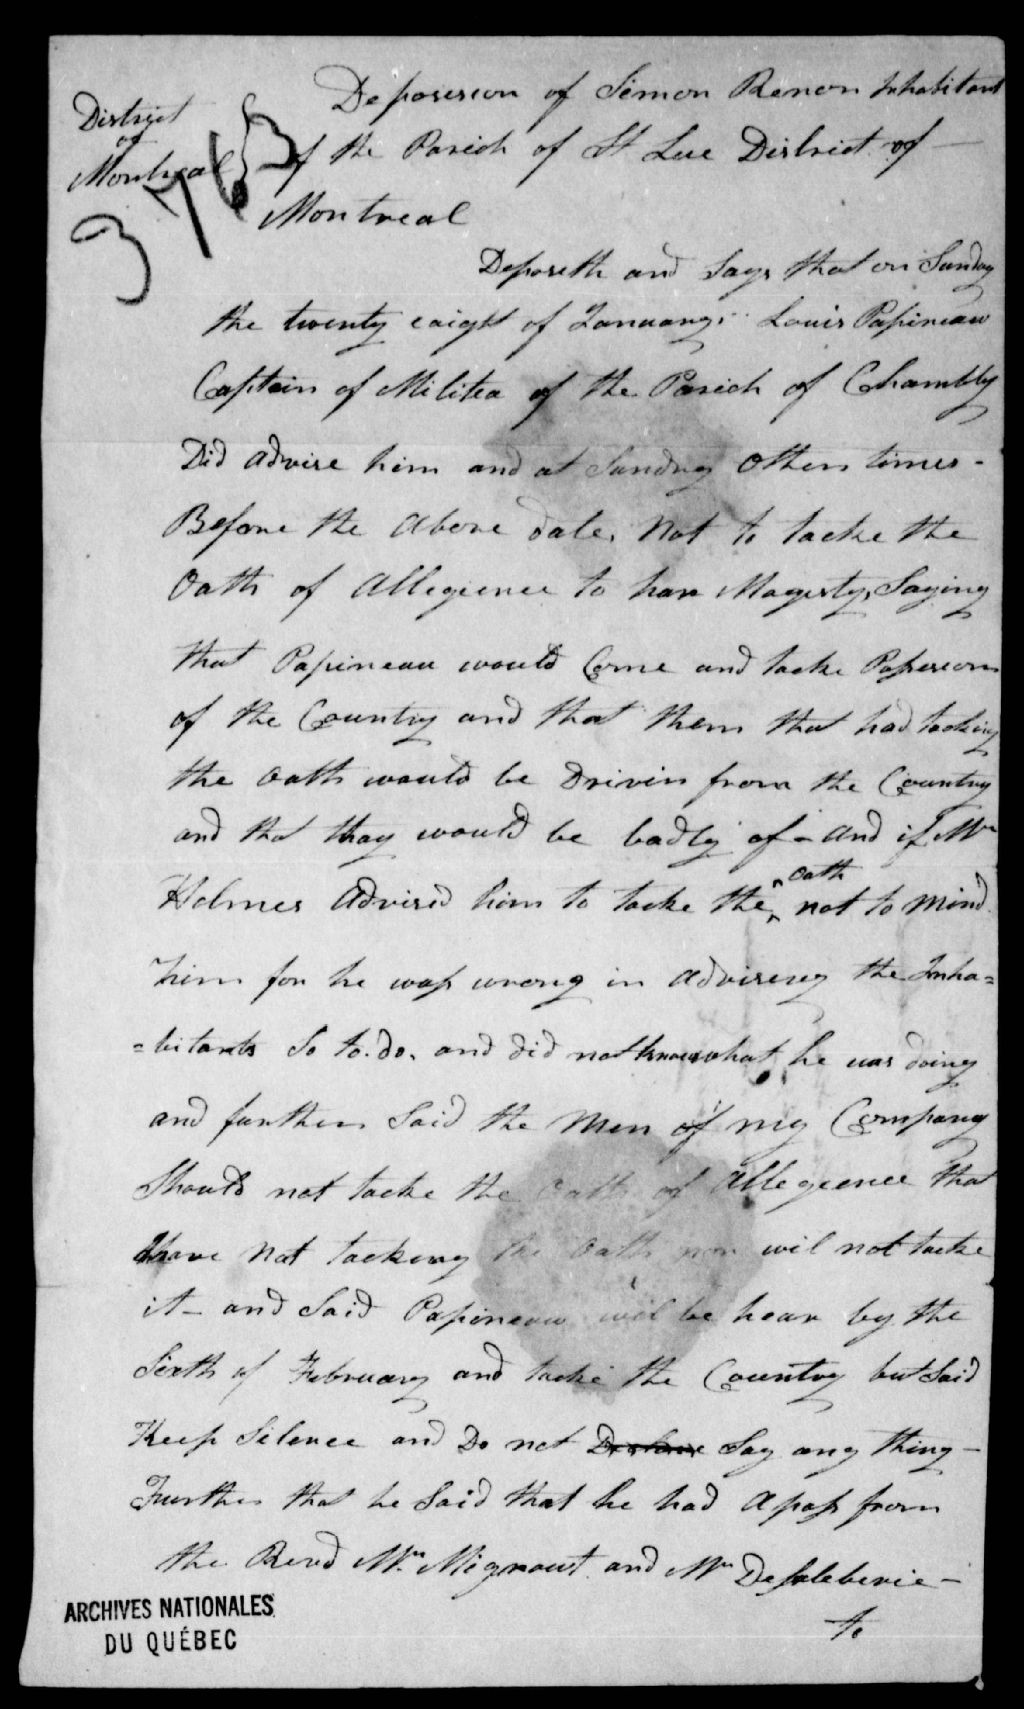 District
of
Montreal
3763
Deposesion of Simon Renon Inhabitant
of the Parich of St Luc District of
Montreal
Deposeth and Says that on Sunday
the twenty eaight of January Louis Papineau
Captain of Militea of the Parich of Chambly
Did advise him and at Sundry Others times -
Before the above date, Not to tacke the
Oath of Allegience to har Magesty, Saying
that Papineau would Come and tacke Posesion
of the Country and that them that had tacking
the oath would be Drivin from the Country
and that thay would be badly of - and if Mr
Holmes Advised him to tacke the oath not to Mind
him for he wass wrong in advising the Inha=
=bitants So to do. and did not know what he was doing
and further Said the Men of my Company
Should not tacke the Oath of Allegience that
have Not tacking the Oath now wil not tacke
it - and Said Papineau wil be hear by the
Sixth of February and tacke the Country but Said
Keep Silence and Do not Say any thing -
Further that he Said that he had a pass from
the Revd Mr. Mignault and Mr
to
ARCHIVES NATIONALES
DU QUÉBEC